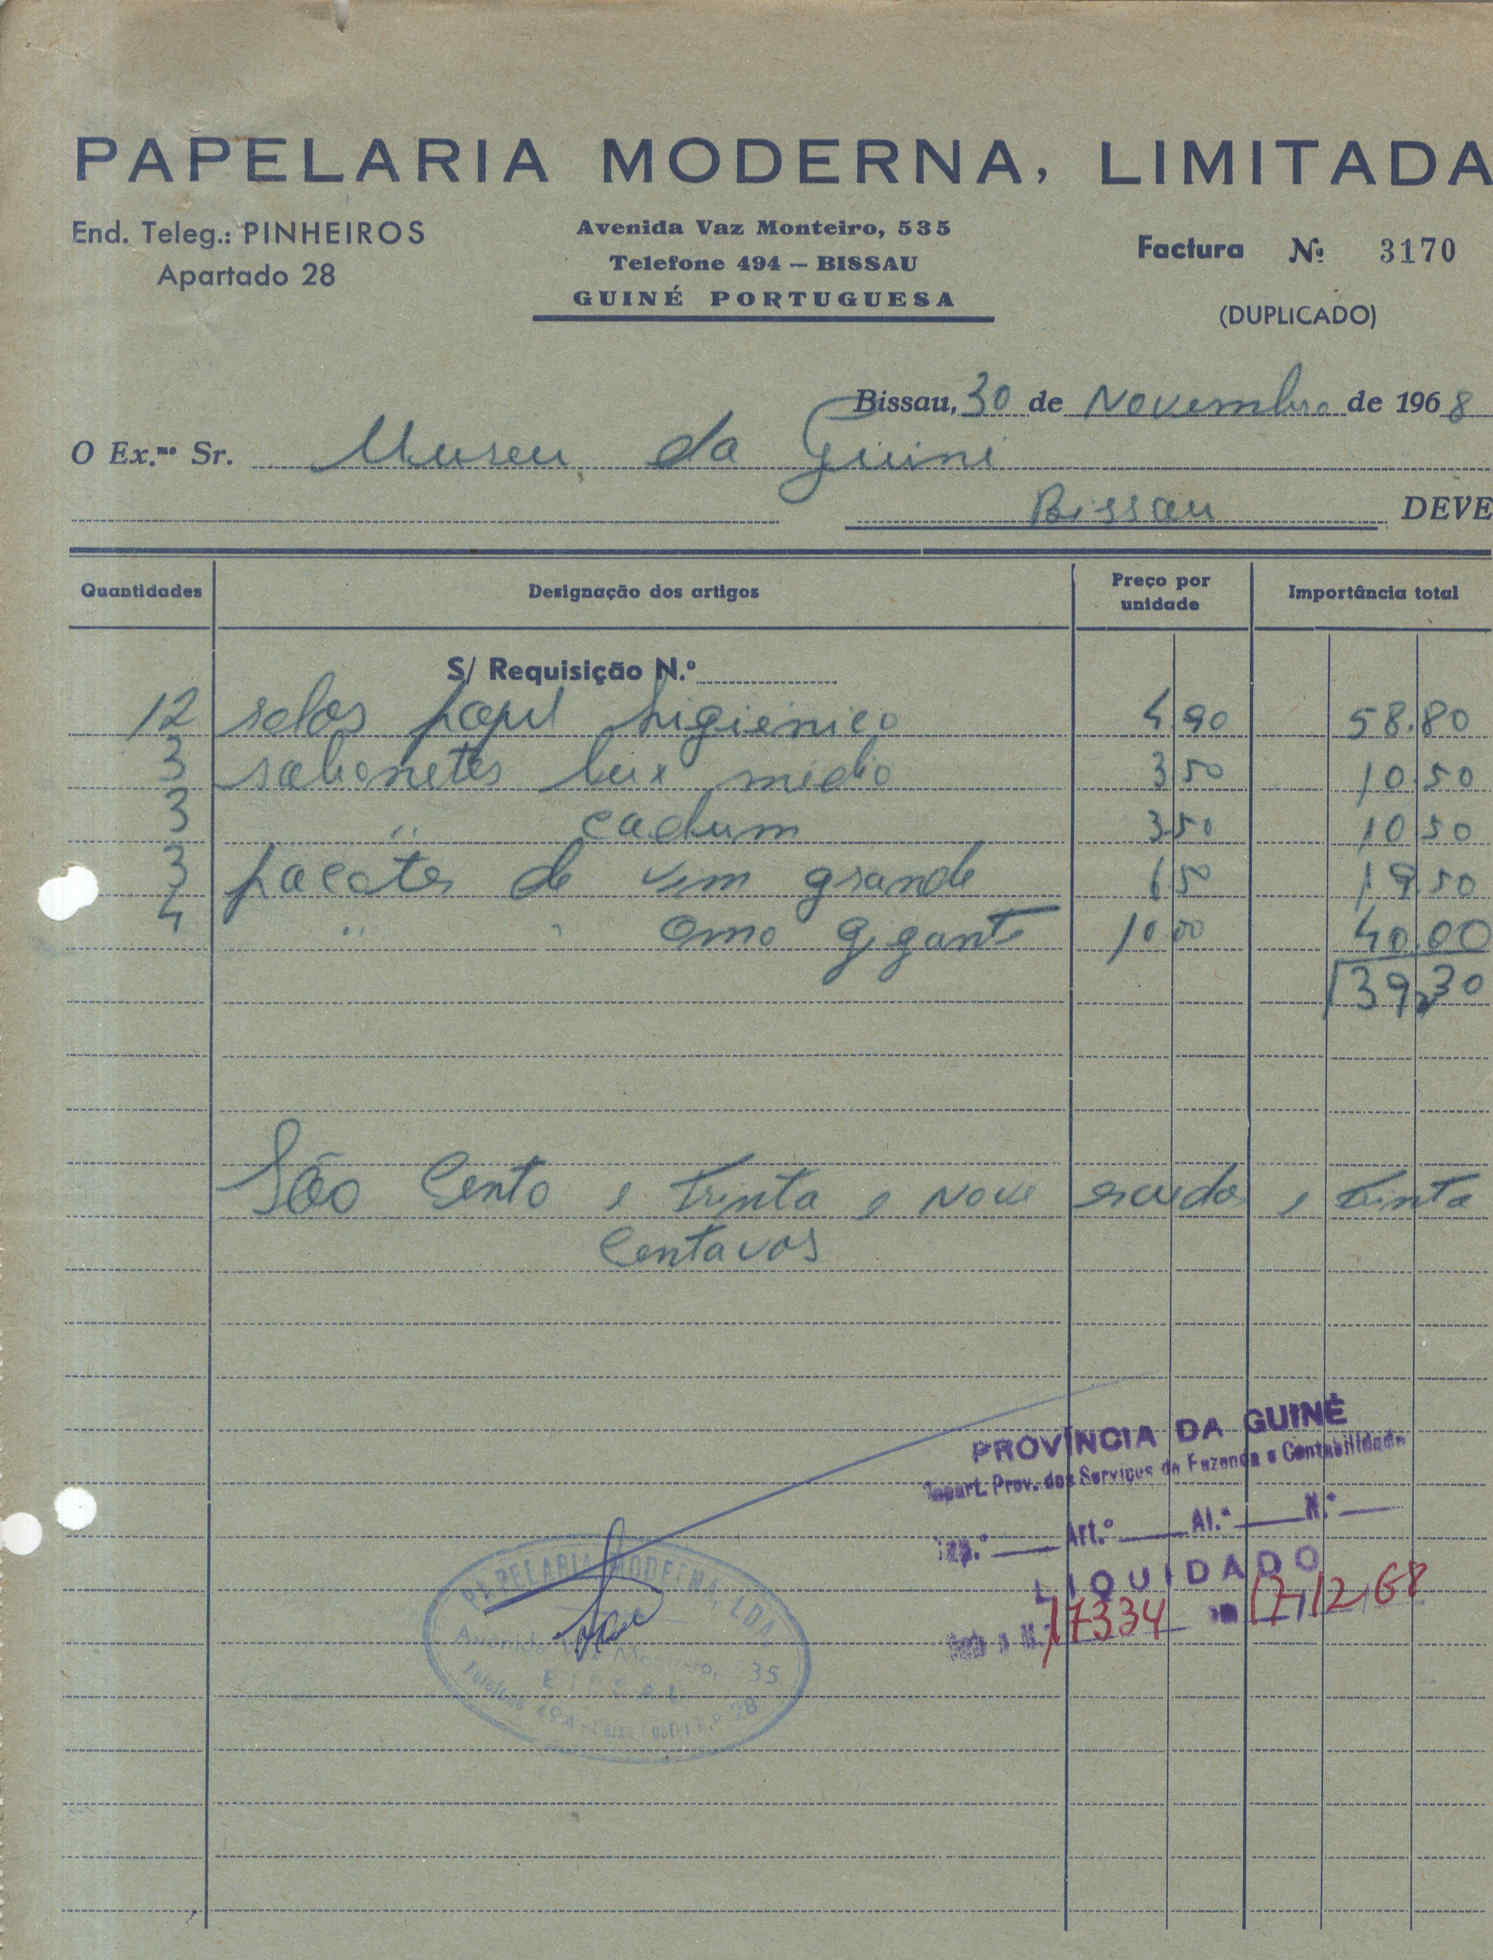 PAPELARIA MODERNA, LIMITADA
End. Teleg.: PINHEIROS
Apartado 28
Avenida Vaz Monteiro, 535
Telefone 494 — BISSAU
GUINÉ PORTUGUESA
Factura Nº 3170
(DUPLICADO)
Bissau, 30 de Novembro de 1968
O Ex.mo Sr. Museu da Guiné
Bissau DEVE
Quantidades Designação dos artigos Preço por unidade Importância total
S/ Requisição N.º
12 rolos papel higienico 4 90 58.80
3 sabonetes lux medio 3 50 10.50
3 " cadum 3 50 10 50
3 pacotes de vim grande 6 50 19.50
4 " " omo gigante 10 00 40.00
139,30
São Cento e trinta e nove escudos e trinta
Centavos
PROVÍNCIA DA GUINÉ
Repart. Prov. dos Serviços de Fazenda e Contabilidade
Cap.º Art.º Al.ª N.º
LIQUIDADO
Sob o N.º 17334 em 17/12/68
PAPELARIA MODERNA, LDA.
Avenida Vaz Monteiro, 535
BISSAU
Telefone 494 - Caixa Postal 28